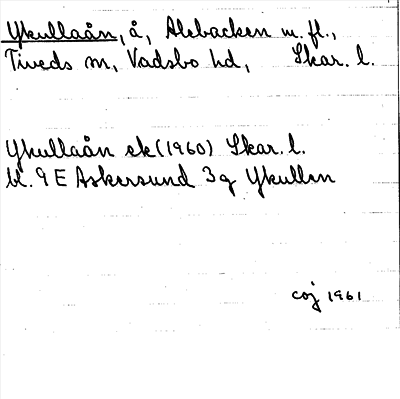 Ykullaån, å, Alebacken m. fl.,
Tiveds sn, Vadsbo hd, Skar. l.
Ykullaån ek (1960) Skar. l.
bl. 9 E Askersund 3 g Ykullen
coj 1961